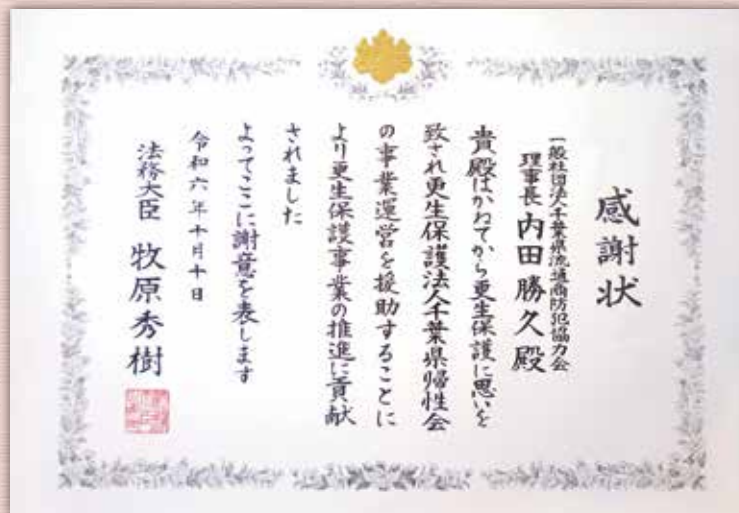 感謝状
一般社団法人千葉県流通商防犯協力会
理事長 内田勝久殿
貴殿はかねてから更生保護に思いを
致され更生保護法人千葉県帰性会
の事業運営を援助することに
より更生保護事業の推進に貢献
されました
よってここに謝意を表します
令和六年十月十日
法務大臣 牧原秀樹